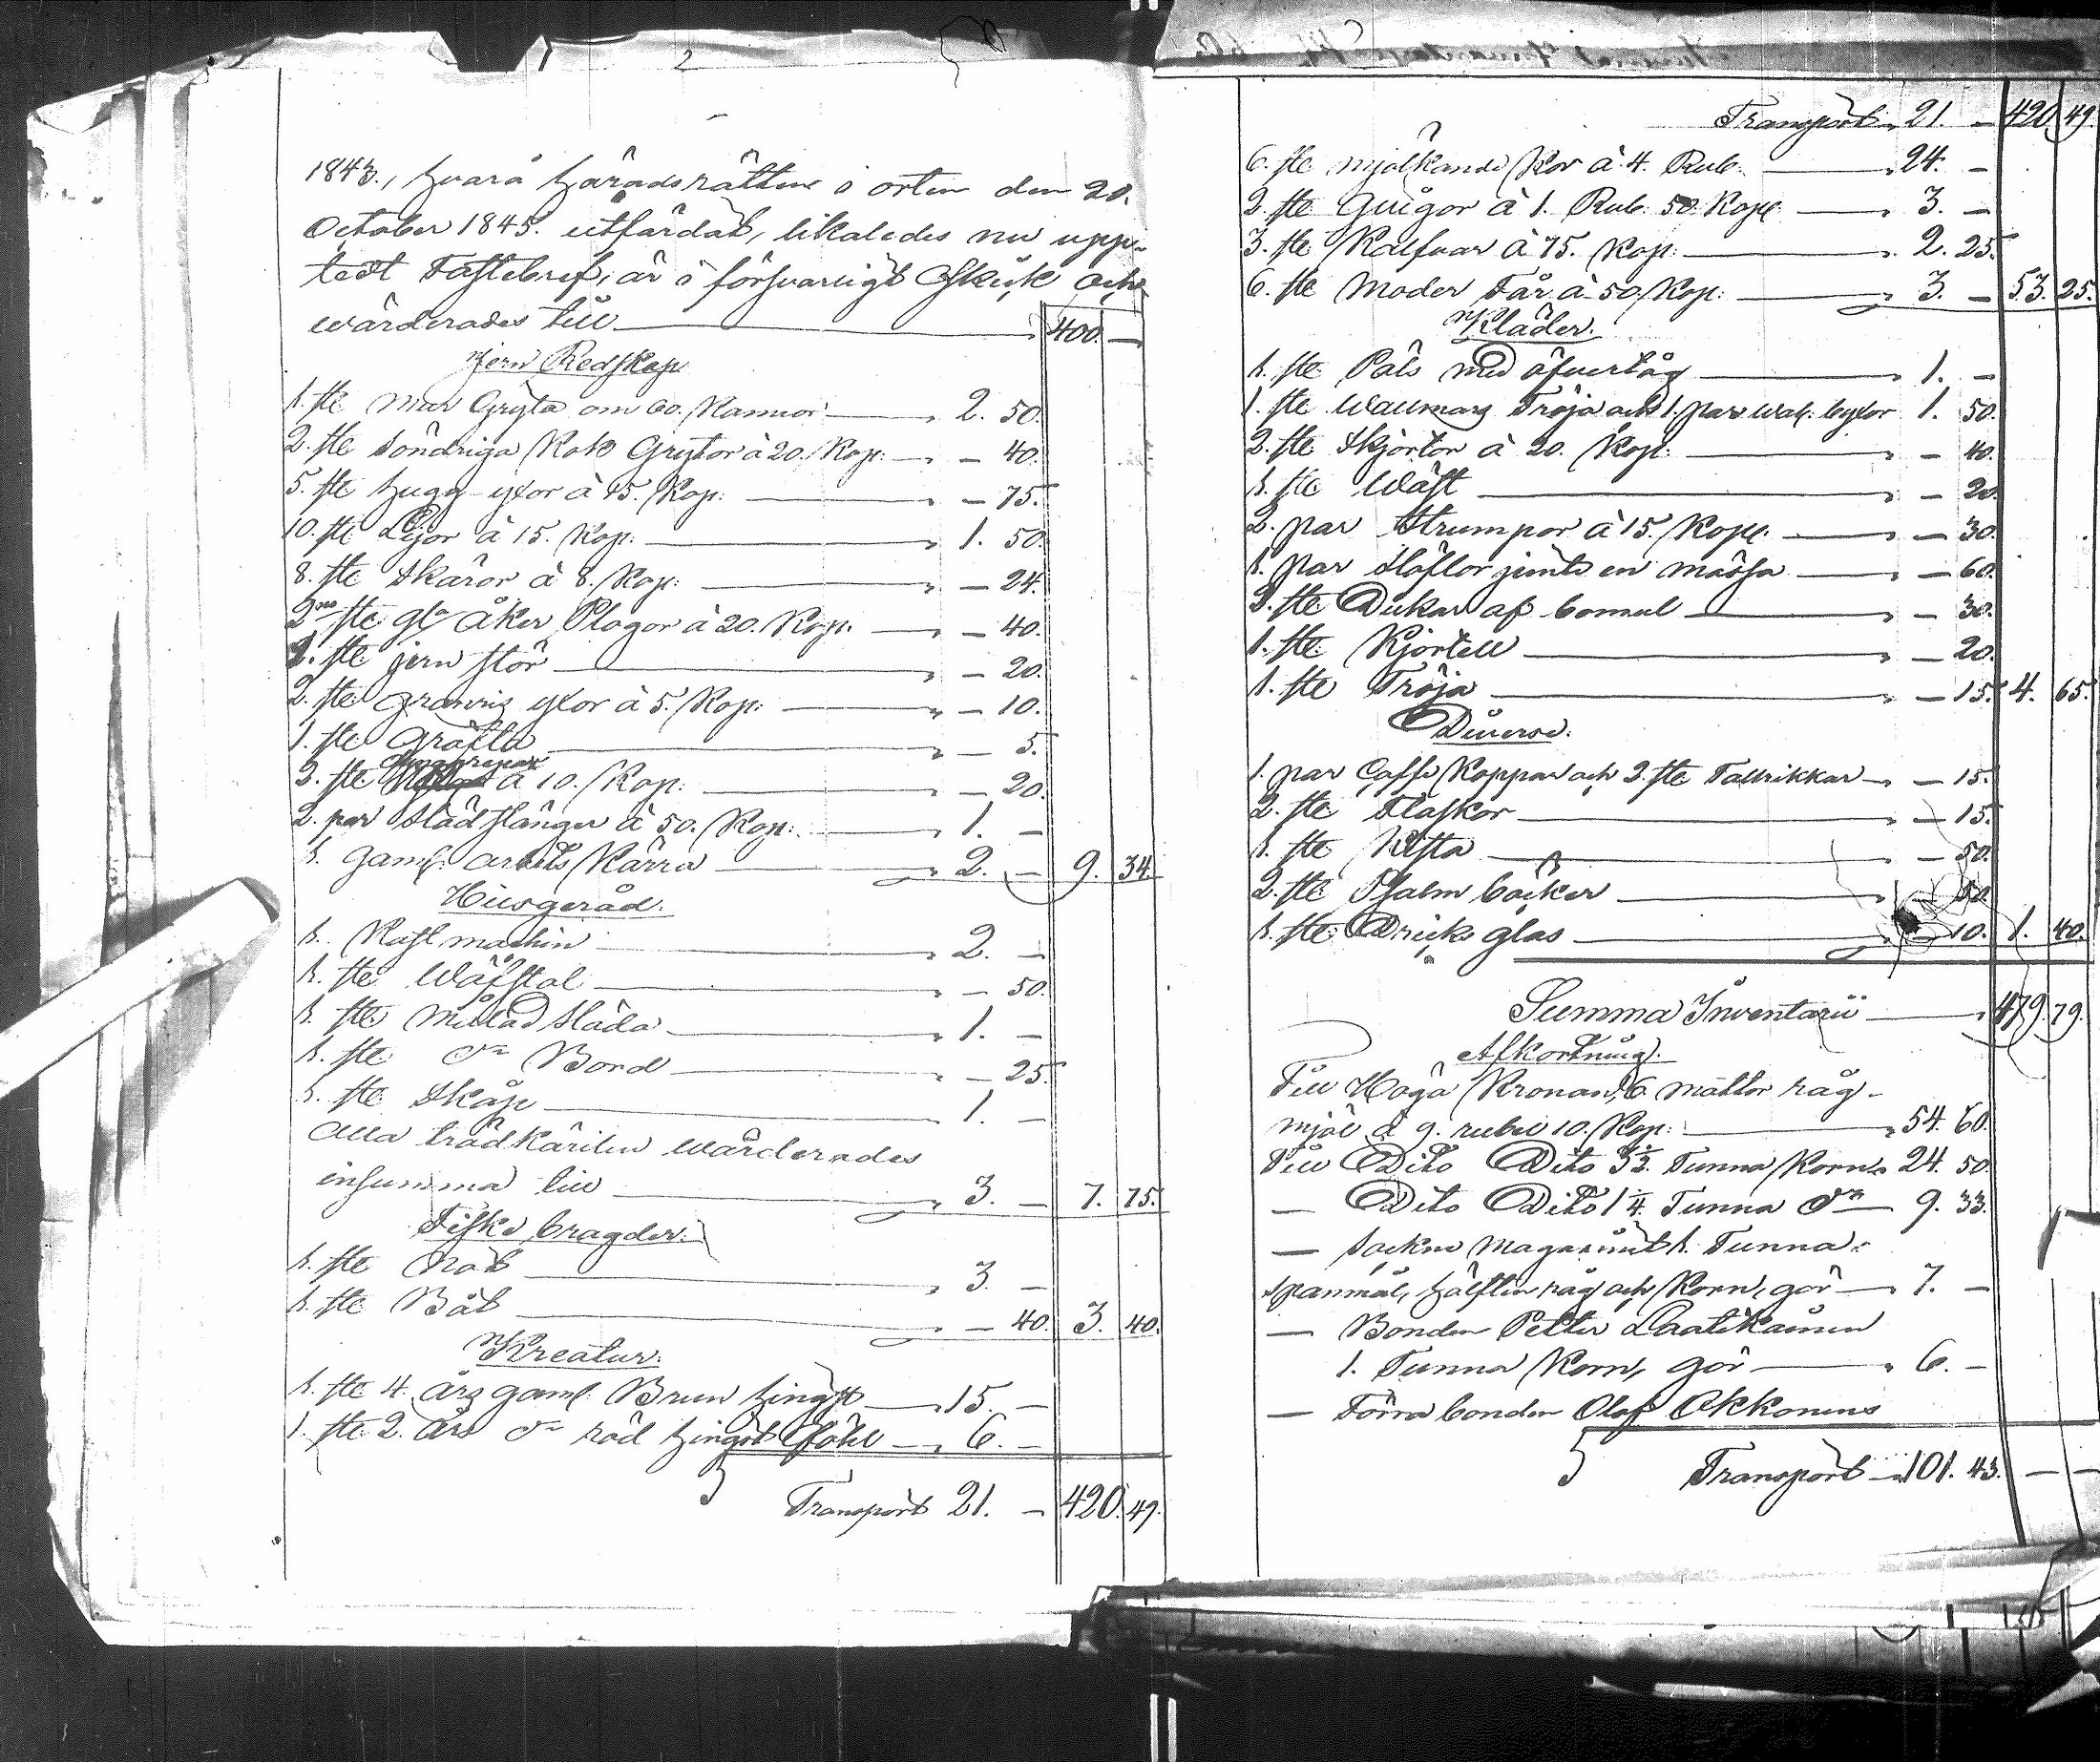 2
1843., hvarå häradsrätten i orten den 20.
October 1845. utfärdat, likaledes nu upp-
tedt Fastebref, är i försvarligt skick och
wärderades till 400. —
Jern Redskap
1. ste mur Gryta om 60. Kannor 2. 50.
2. ste söndriga Kok Grytor à 20. Kop: — 40.
5. ste hugg yxor à 15. Kop: — 75.
10. ste Lijor à 15. Kop: 1. 50.
8. ste Skäror à 8. Kop: — 24.
2. ste gla åker Plogor à 20. Kop: — 40.
1. ste jern stör — 20.
2. ste yxor à 5. Kop: — 10.
1. ste Gräfta — 5.
2. ste à 10. Kop: — 20.
2. par Släd stänger à 50. Kop: 1. —
1. gaml: arbets Kärra 2. — 9. 34.
Husgeråd.
1. Rust machin 2. —
1. ste Wäfstol — 50.
1. ste målad släda 1. —
1. ste do Bord — 25.
1. ste Skåp 1. —
Alla trädkärilen wärderades
insumma till 3. — 7. 75.
Fiske bragder.
1. ste Not 3. —
1. ste Båt — 40. 3. 40.
Kreatur.
1. ste 4. års gaml: Brun hingst 15. —
1. ste 2. års do röd hingst fåhle 6. —
Transport 21. — 420. 49.
Transport 21. — 420. 49.
6. ste mjölkande Kor à 4. Rub. 24. —
2. ste Quigor à 1. Rub: 50 Kop: 3. —
3. ste Kalfvar à 75. Kop: 2. 25.
6. ste Moder Får à 50. Kop: 3. — 53. 25.
Kläder.
1. ste Päls med öfvertåg 1. —
1. ste Wallmars Tröja och 1. par wal. byxor 1. 50.
2. ste Skjortor à 20. Kop: — 40.
1. ste Wäst — 20.
2. par Strumpor à 15. Kop: — 30.
1. par Stöflor jemte en mössa — 60.
3. ste Dukar af bomul — 30.
1. ste Kjortell — 20.
1. ste Tröja — 15. 4. 65.
Diverse.
1. par Caffe Koppar och 3. ste Tallrikkar — 15.
2. ste Flaskor — 15.
1. ste Kista — 50.
2. ste Psalm böcker — 50.
1. ste Dricks glas — 10. 1. 40.
Summa Inventarii 479. 79.
Afkortning.
Till Höga Kronan, 6. mattor råg-
mjöl à 9. rubel 10. Kop: 54. 60.
Till Dito Dito 3½. Tunna Korn 24. 50.
— Dito Dito 1¼. Tunna do 9. 33.
— Sockne Magasinet 1. Tunna
spanmål, hälften råg och Korn, gör 7. —
— Bonden Petter Laatikainen
1. Tunna Korn, gör 6. —
— Förra bonden Olof Okkonens
Transport 101. 43. — —